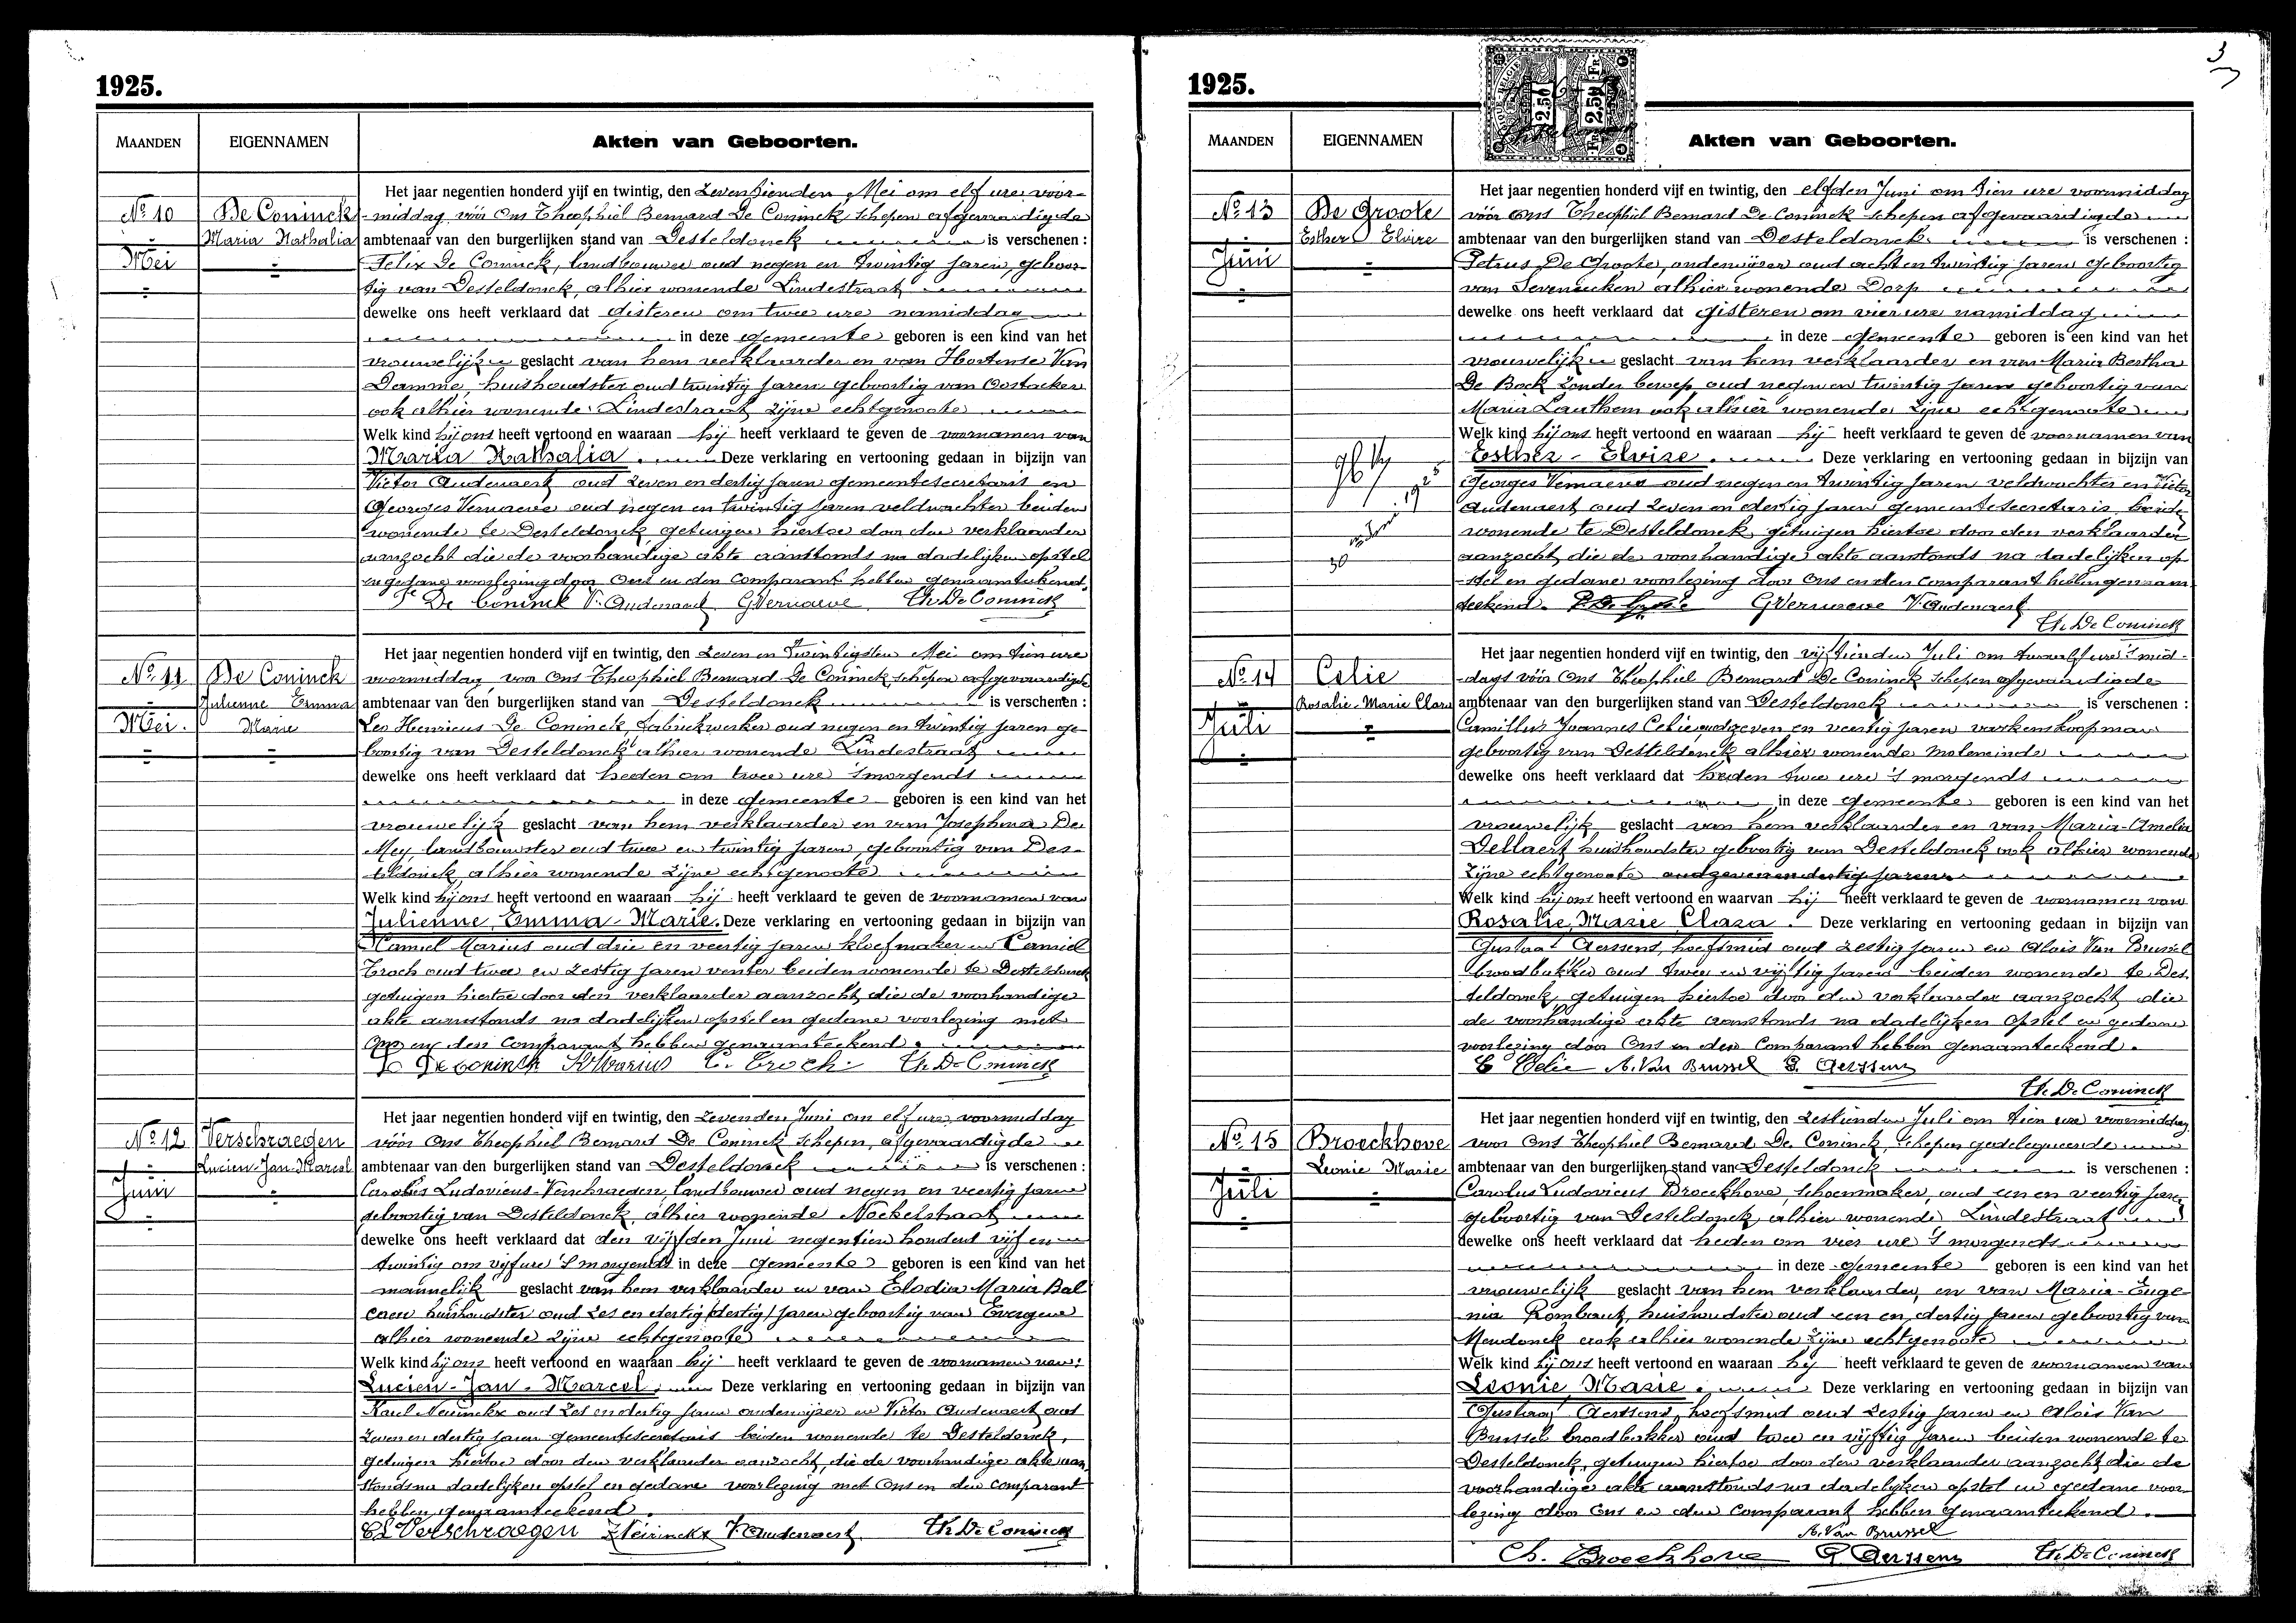 1925.
MAANDEN EIGENNAMEN Akten van Geboorten.
Het jaar negentien honderd vijf en twintig, den Zeventienden Mei om elf ure voor-
No 10 De Coninck -middag vóór Ons Theophiel Bernard De Coninck schepen afgevaardigde
Maria Nathalia ambtenaar van den burgerlijken stand van Desteldonck is verschenen :
Mei Felix De Coninck, landbouwer oud negen en twintig jaren, geboor-
tig van Desteldonck, alhier wonende Lindestraat
dewelke ons heeft verklaard dat gisteren om twee ure namiddag
in deze gemeente geboren is een kind van het
vrouwelijk geslacht van hem verklaarder en van Hortense Van
Damme, huishoudster oud twintig jaren geboortig van Oostacker
ook alhier wonende Lindestraat zijne echtgenoote
Welk kind hij ons heeft vertoond en waaraan hij heeft verklaard te geven de voornamen van
Maria Nathalia. Deze verklaring en vertooning gedaan in bijzijn van
Victor Audenaert oud zeven en dertig jaren gemeentesecretaris en
Georges Vernaeve oud negen en twintig jaren veldwachter beiden
wonende te Desteldonck getuigen hiertoe door den verklaarder
aanzocht die de voorhandige akte aanstonds na dadelijken opstel
en gedane voorlezing door Ons en den Comparant hebben genaamteekend.
De Coninck V. Audenaert GVernaeve Th. De Coninck
Het jaar negentien honderd vijf en twintig, den Zeven en Twintigsten Mei om tien ure
No 11 De Coninck voormiddag voor Ons Theophiel Bernard De Coninck schepen afgevaardigde
Julienne Emma ambtenaar van den burgerlijken stand van Desteldonck is verschenen :
Mei. Marie Leo Henricus De Coninck, fabriekwerker oud negen en twintig jaren ge-
boortig van Desteldonck alhier wonende Lindestraat
dewelke ons heeft verklaard dat heden om twee ure 's morgends
in deze gemeente geboren is een kind van het
vrouwelijk geslacht van hem verklaarder en van Josephina De
Mey landbouwster oud twee en twintig jaren, geboortig van Des-
teldonck, alhier wonende zijne echtgenoote
Welk kind hij ons heeft vertoond en waaraan hij heeft verklaard te geven de voornamen van
Julienne Emma Marie. Deze verklaring en vertooning gedaan in bijzijn van
Camiel Marius oud drie en veertig jaren kloefmaker en Camiel
Troch oud twee en zestig jaren venter beiden wonende te Desteldonck
getuigen hiertoe door den verklaarder aanzocht, die de voorhandige
akte aanstonds na dadelijken opstel en gedane voorlezing met
Ons en den Comparant hebben genaamteekend.
De Coninck Marius C. Troch. Th. De Coninck
Het jaar negentien honderd vijf en twintig, den Zevenden Juni om elf ure voormiddag
No 12 Verschraegen vóór Ons Theophiel Bernard De Coninck schepen, afgevaardigde
Lucien-Jan-Marcel ambtenaar van den burgerlijken stand van Desteldonck is verschenen :
Juni Carolus Ludovicus Verschraegen, landbouwer oud negen en veertig jaren
geboortig van Desteldonck, alhier wonende Nockelstraat
dewelke ons heeft verklaard dat den vijfden Juni negentien hondert vijf en
twintig om vijf ure 's morgends in deze gemeente geboren is een kind van het
mannelijk geslacht van hem verklaarder en van Elodia Maria Bal
caen huishoudster oud zes en dertig (dertig) jaren geboortig van Evergem
alhier wonende zijne echtgenoote
Welk kind hij ons heeft vertoond en waaraan hij heeft verklaard te geven de voornamen van:
Lucien-Jan-Marcel. Deze verklaring en vertooning gedaan in bijzijn van
Karel Neirinckx oud zes en dertig jaren onderwijzer en Victor Audenaert oud
zeven en dertig jaren gemeentesecretaris beiden wonende te Desteldonck,
getuigen hiertoe door den verklaarder aanzocht, die de voorhandige akte aan-
stonds na dadelijken opstel en gedane voorlezing met Ons en den comparant
hebben genaamteekend.
Verschraegen Neirinckx V. Audenaert. Th. De Coninck
3
1925.
2,50 FR 2,50 FR
MAANDEN EIGENNAMEN Akten van Geboorten.
Het jaar negentien honderd vijf en twintig, den elfden Juni om tien ure voormiddag
No 13 De Groote vóór Ons Theophiel Bernard De Coninck schepen afgevaardigde
Esther Elvire ambtenaar van den burgerlijken stand van Desteldonck is verschenen :
Juni Petrus De Groote, onderwijzer oud acht en twintig jaren geboortig
van Seveneecken alhier wonende Dorp
dewelke ons heeft verklaard dat gisteren om vier ure namiddag
in deze gemeente geboren is een kind van het
vrouwelijk geslacht van hem verklaarder en van Maria Bertha
De Bock zonder beroep oud negen en twintig jaren geboortig van
Maria Lauthem ook alhier wonende zijne echtgenoote
Welk kind hij ons heeft vertoond en waaraan hij heeft verklaard te geven de voornamen van
Esther-Elvire. Deze verklaring en vertooning gedaan in bijzijn van
Georges Vernaeve oud negen en twintig jaren veldwachter en Victor
Audenaert oud zeven en dertig jaren gemeentesecretaris beide
wonende te Desteldonck, getuigen hiertoe door den verklaarder
30
aanzocht, die de voorhandige akte aanstonds na dadelijken op-
-stel en gedane voorlezing door Ons en den Comparant hebben genaam
teekend. P. De Groote GVernaeve V. Audenaert
Th. De Coninck
Het jaar negentien honderd vijf en twintig, den vijftienden Juli om twaalf ure 's mid-
No 14 Celie -dags vóór Ons Theophiel Bernard De Coninck schepen afgevaardigde
Rosalie-Marie Clara ambtenaar van den burgerlijken stand van Desteldonck is verschenen :
Juli Camillus Joannes Celie, oud zeven en veertig jaren varkenskoopman
geboortig van Desteldonck alhier wonende Moleneinde
dewelke ons heeft verklaard dat heden twee ure 's morgends
in deze gemeente geboren is een kind van het
vrouwelijk geslacht van hem verklaarder en van Maria-Amelia
Dellaert huishoudster geboortig van Desteldonck ook alhier wonende
zijne echtgenoote oud zeven en dertig jaren
Welk kind hij ons heeft vertoond en waarvan hij heeft verklaard te geven de voornamen van
Rosalie, Marie Clara. Deze verklaring en vertooning gedaan in bijzijn van
Gustaaf Aerssens, hoefsmid oud zestig jaren en Alois Van Brussel
broodbakker oud twee en vijftig jaren beiden wonende te Des-
teldonck, getuigen hiertoe door den verklaarder aanzocht, die
de voorhandige akte aanstonds na dadelijken opstel en gedane
voorlezing door Ons en den Comparant hebben genaamteekend.
C Celie A. Van Brussel G. Aerssens
Th. De Coninck
Het jaar negentien honderd vijf en twintig, den zestienden Juli om tien ure voormiddag
No 15 Broeckhove voor Ons Theophiel Bernard De Coninck, schepen gedelegueerde
Leonie Marie ambtenaar van den burgerlijken stand van Desteldonck is verschenen :
Juli Carolus Ludovicus Broeckhove, schoenmaker, oud een en veertig jaren
geboortig van Desteldonck, alhier wonende Lindestraat
dewelke ons heeft verklaard dat heden om vier ure 's morgends
in deze gemeente geboren is een kind van het
vrouwelijk geslacht van hem verklaarder, en van Maria-Euge-
nia Rombaut, huishoudster oud een en dertig jaren geboortig van
Mendonck ook alhier wonende zijne echtgenoote
Welk kind hij ons heeft vertoond en waaraan hij heeft verklaard te geven de voornamen van
Leonie Marie. Deze verklaring en vertooning gedaan in bijzijn van
Gustaaf Aerssens, hoefsmid oud zestig jaren en Alois Van
Brussel broodbakker oud twee en vijftig jaren beiden wonende te
Desteldonck, getuigen hiertoe door den verklaarder aanzocht die de
voorhandige akte aanstonds na dadelijken opstel en gedane voor-
lezing door Ons en den Comparant hebben genaamteekend.
A. Van Brussel
Ch. Broeckhove G. Aerssens Th. De Coninck